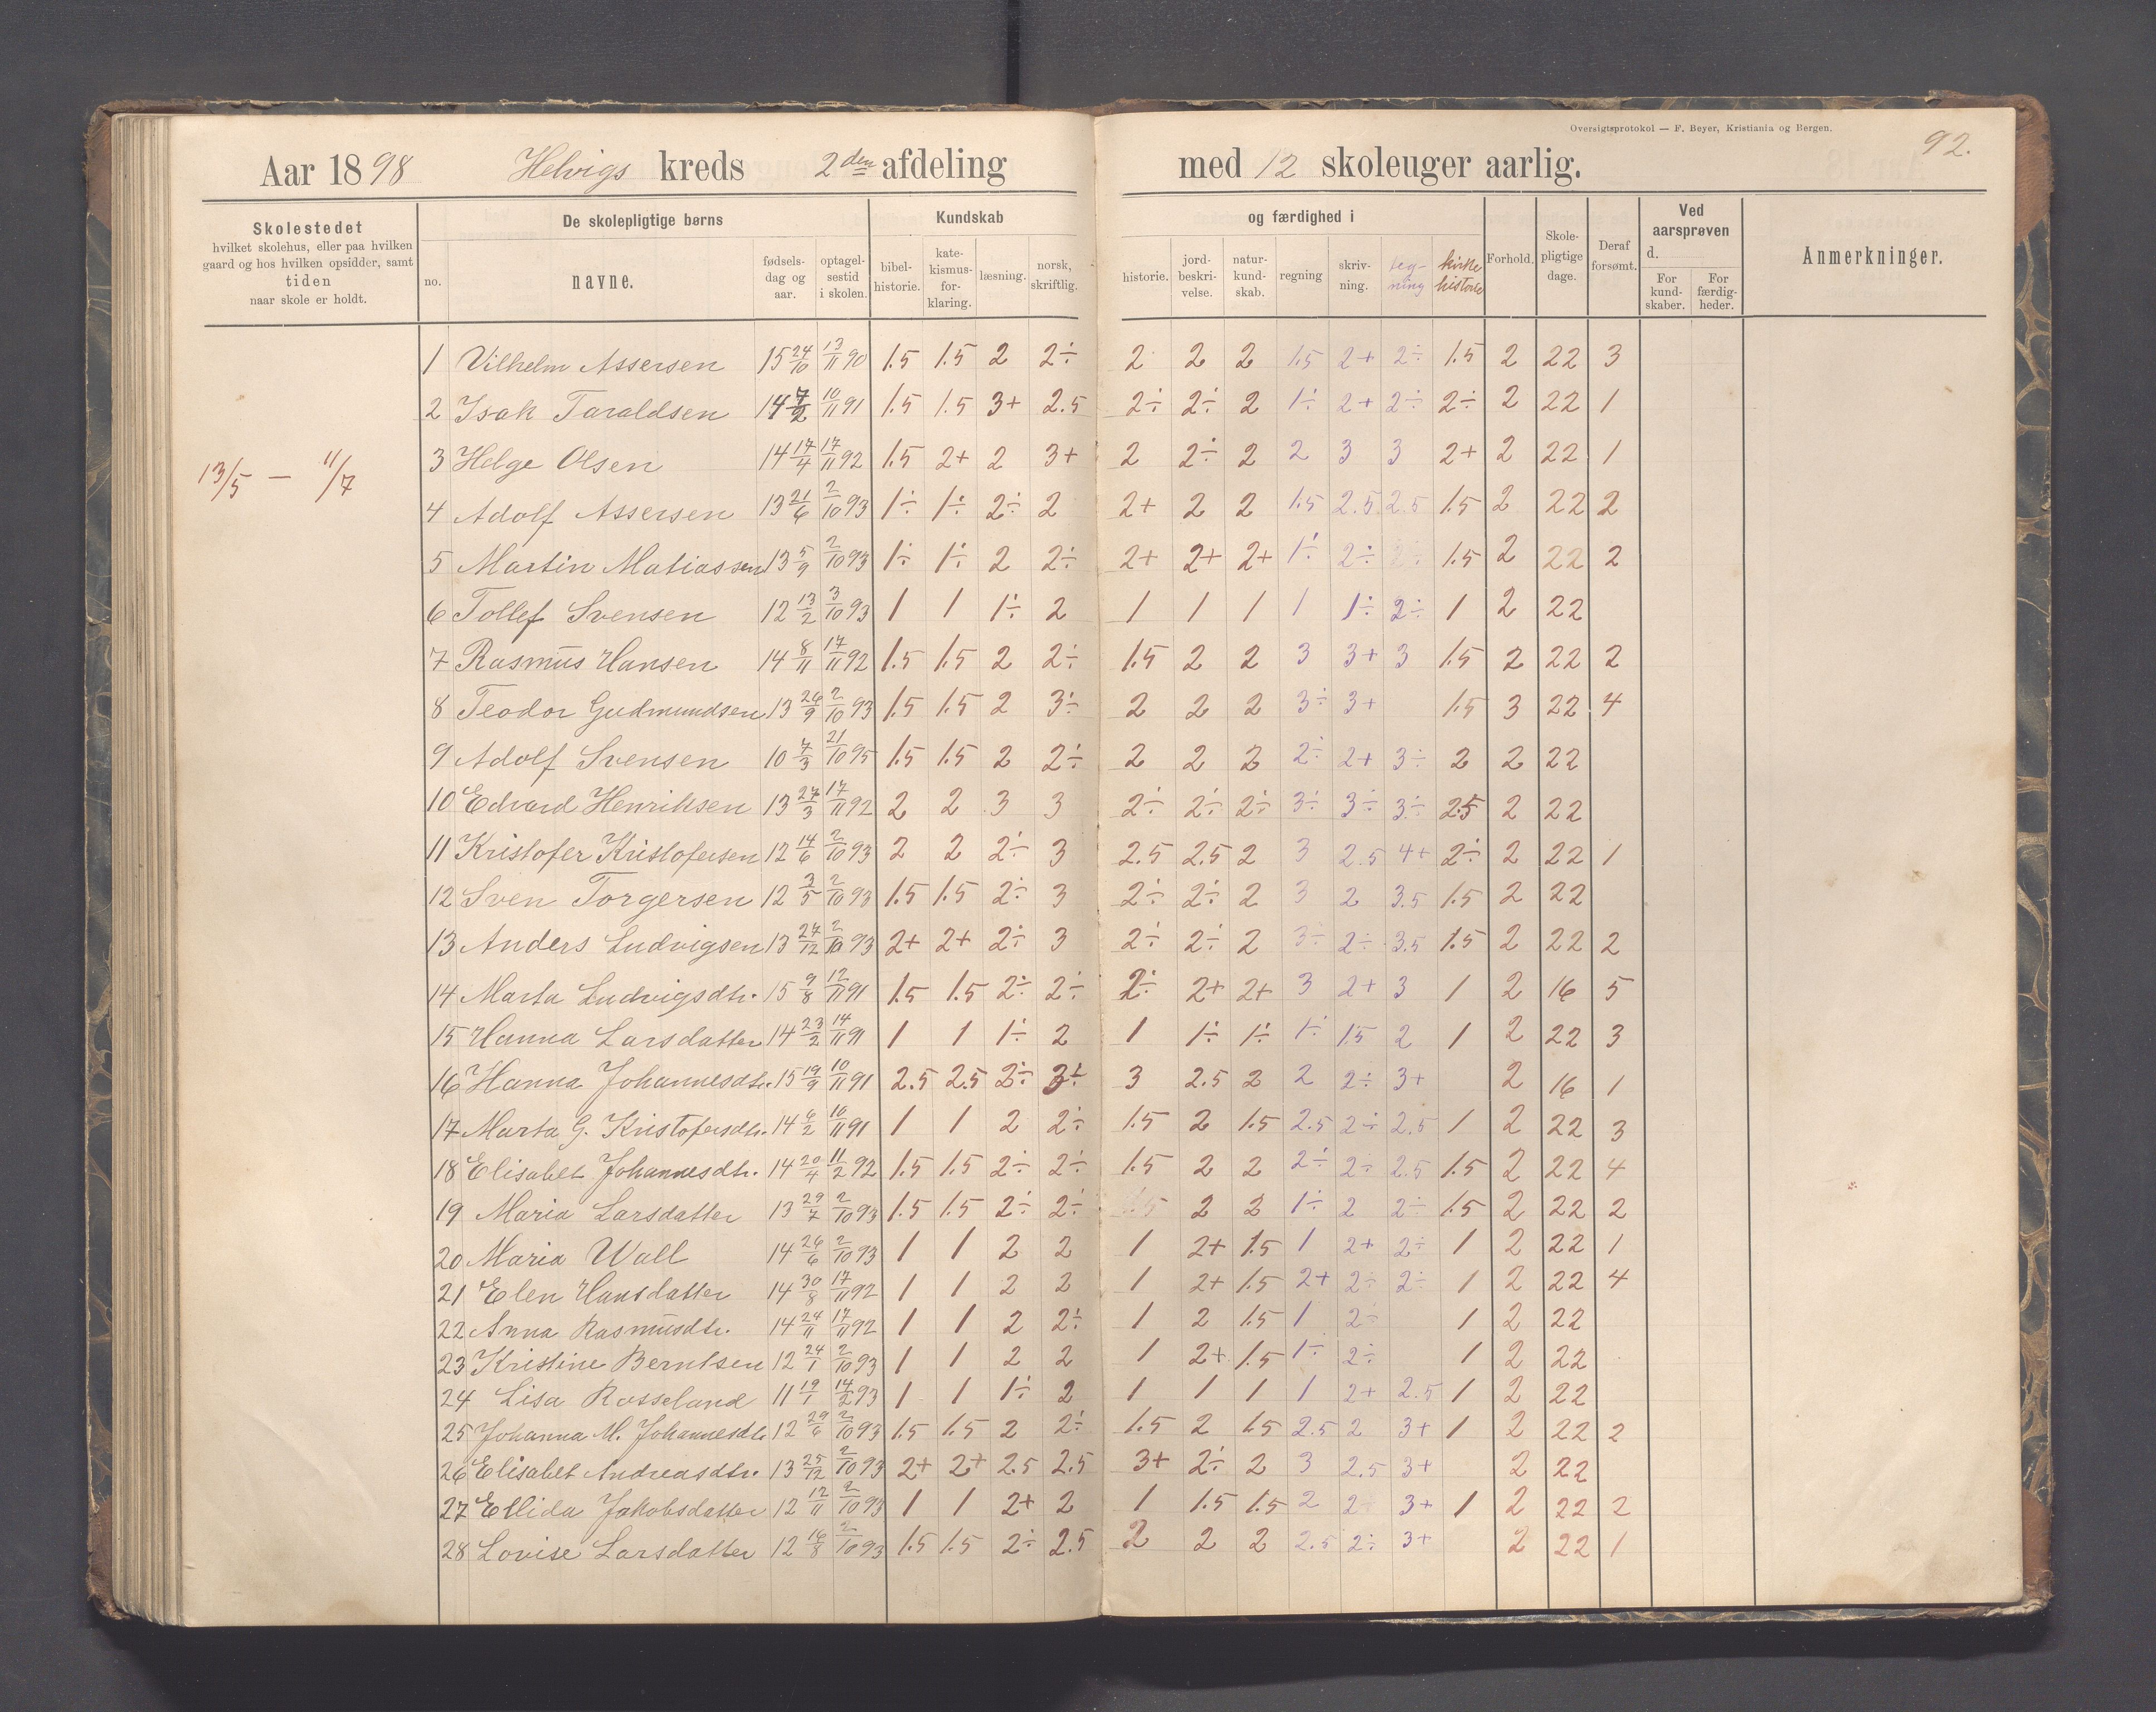 Oversigtsprotokol — F. Beyer, Kristiania og Bergen.
92.
Aar 1898 Helvigs kreds 2den afdeling med 12 skoleuger aarlig.
Skolestedet
hvilket skolehus, eller paa hvilken
gaard og hos hvilken opsidder, samt
tiden
naar skole er holdt.
De skolepligtige børns
no. navne. fødsels-dag og aar. optagel-sestid i skolen.
Kundskab og færdighed i
bibel-historie. kate-kismus-for-klaring. læsning. norsk, skriftlig. historie. jord-beskri-velse. natur-kund-skab. regning skriv-ning. teg-ning kirke historie
Forhold. Skole-pligtige dage. Deraf forsømt.
Ved aarsprøven d.
For kund-skaber. For færdig-heder.
Anmerkninger.
13/5 — 11/7
1 Vilhelm Assersen 15 24/10 13/11 90 1.5 1.5 2 2÷ 2 2 2 1.5 2+ 2÷ 1.5 2 22 3
2 Isak Taraldsen 14 7/2 10/11 91 1.5 1.5 3+ 2.5 2÷ 2÷ 2 1÷ 2+ 2÷ 2÷ 2 22 1
3 Helge Olsen 14 17/4 17/11 92 1.5 2+ 2 3+ 2 2÷ 2 2 3 3 2+ 2 22 1
4 Adolf Assersen 13 21/6 2/10 93 1÷ 1÷ 2÷ 2 2+ 2 2 1.5 2.5 2.5 1.5 2 22 2
5 Martin Matiassen 13 5/9 2/10 93 1÷ 1÷ 2 2÷ 2+ 2+ 2+ 1÷ 2÷ 2÷ 1.5 2 22 2
6 Tollef Svensen 12 13/2 3/10 93 1 1 1÷ 2 1 1 1 1 1÷ 2÷ 1 2 22
7 Rasmus Hansen 14 8/11 17/11 92 1.5 1.5 2 2÷ 1.5 2 2 3 3+ 3 1.5 2 22 2
8 Teodor Gudmundsen 13 26/9 2/10 93 1.5 1.5 2 3÷ 2 2 2 3÷ 3+ 1.5 3 22 4
9 Adolf Svensen 10 7/3 21/10 95 1.5 1.5 2 2÷ 2 2 2 2÷ 2+ 3÷ 2 2 22
10 Edvard Henriksen 13 27/3 17/11 92 2 2 3 3 2÷ 2÷ 2÷ 3÷ 3÷ 3÷ 2.5 2 22
11 Kristofer Kristofersen 12 14/6 2/10 93 2 2 2÷ 3 2.5 2.5 2 3 2.5 4+ 2÷ 2 22 1
12 Sven Torgersen 12 3/5 2/10 93 1.5 1.5 2÷ 3 2÷ 2÷ 2 3 2 3.5 1.5 2 22
13 Anders Ludvigsen 13 27/12 2/10 93 2+ 2+ 2÷ 3 2÷ 2÷ 2 3÷ 2÷ 3.5 1.5 2 22 2
14 Marta Ludvigsdtr. 15 9/8 12/11 91 1.5 1.5 2÷ 2÷ 2÷ 2+ 2+ 3 2+ 3 1 2 16 5
15 Hanna Larsdatter 14 23/2 14/11 91 1 1 1÷ 2 1 1÷ 1÷ 1÷ 1.5 2 1 2 22 3
16 Hanna Johannesdtr. 15 19/9 10/11 91 2.5 2.5 2÷ 3÷ 3 2.5 2 2 2÷ 3+ 2 16 1
17 Marta G. Kristofersdtr. 14 6/2 10/11 91 1 1 2 2÷ 1.5 2 1.5 2.5 2÷ 2.5 1 2 22 3
18 Elisabet Johannesdtr. 14 20/4 11/2 92 1.5 1.5 2÷ 2÷ 1.5 2 2 2÷ 2÷ 2.5 1.5 2 22 4
19 Maria Larsdatter 13 29/7 2/10 93 1.5 1.5 2÷ 2÷ 1.5 2 2 1÷ 2 2÷ 1.5 2 22 2
20 Maria Wall 14 26/6 2/10 93 1 1 2 2 1 2+ 1.5 1 2+ 2÷ 1 2 22 1
21 Elen Hansdatter 14 30/8 17/11 92 1 1 2 2 1 2+ 1.5 2+ 2÷ 2÷ 1 2 22 4
22 Anna Rasmusdtr. 14 24/11 17/11 92 1 1 2 2÷ 1 2 1.5 1 2÷ 1 2 22
23 Kristine Berntsen 12 24/1 2/10 93 1 1 2 2 1 2+ 1.5 1÷ 2÷ 1 2 22
24 Lisa Rosseland 11 19/1 14/2 93 1 1 1÷ 2 1 1 1 1 2+ 2.5 1 2 22
25 Johanna M. Johannesdtr 12 29/6 2/10 93 1.5 1.5 2 2÷ 1.5 2 1.5 2.5 2 3+ 1 2 22 2
26 Elisabet Andreasdtr. 13 25/12 2/10 93 2+ 2+ 2.5 2.5 3+ 2÷ 2 3 2.5 3+ 2 22
27 Ellida Jakobsdatter 12 12/11 2/10 93 1 1 2+ 2 1 1.5 1.5 2 2 3+ 1 2 22 2
28 Lovise Larsdatter 12 16/8 2/10 93 1.5 1.5 2÷ 2.5 2 2 2 2.5 2÷ 3+ 2 22 1